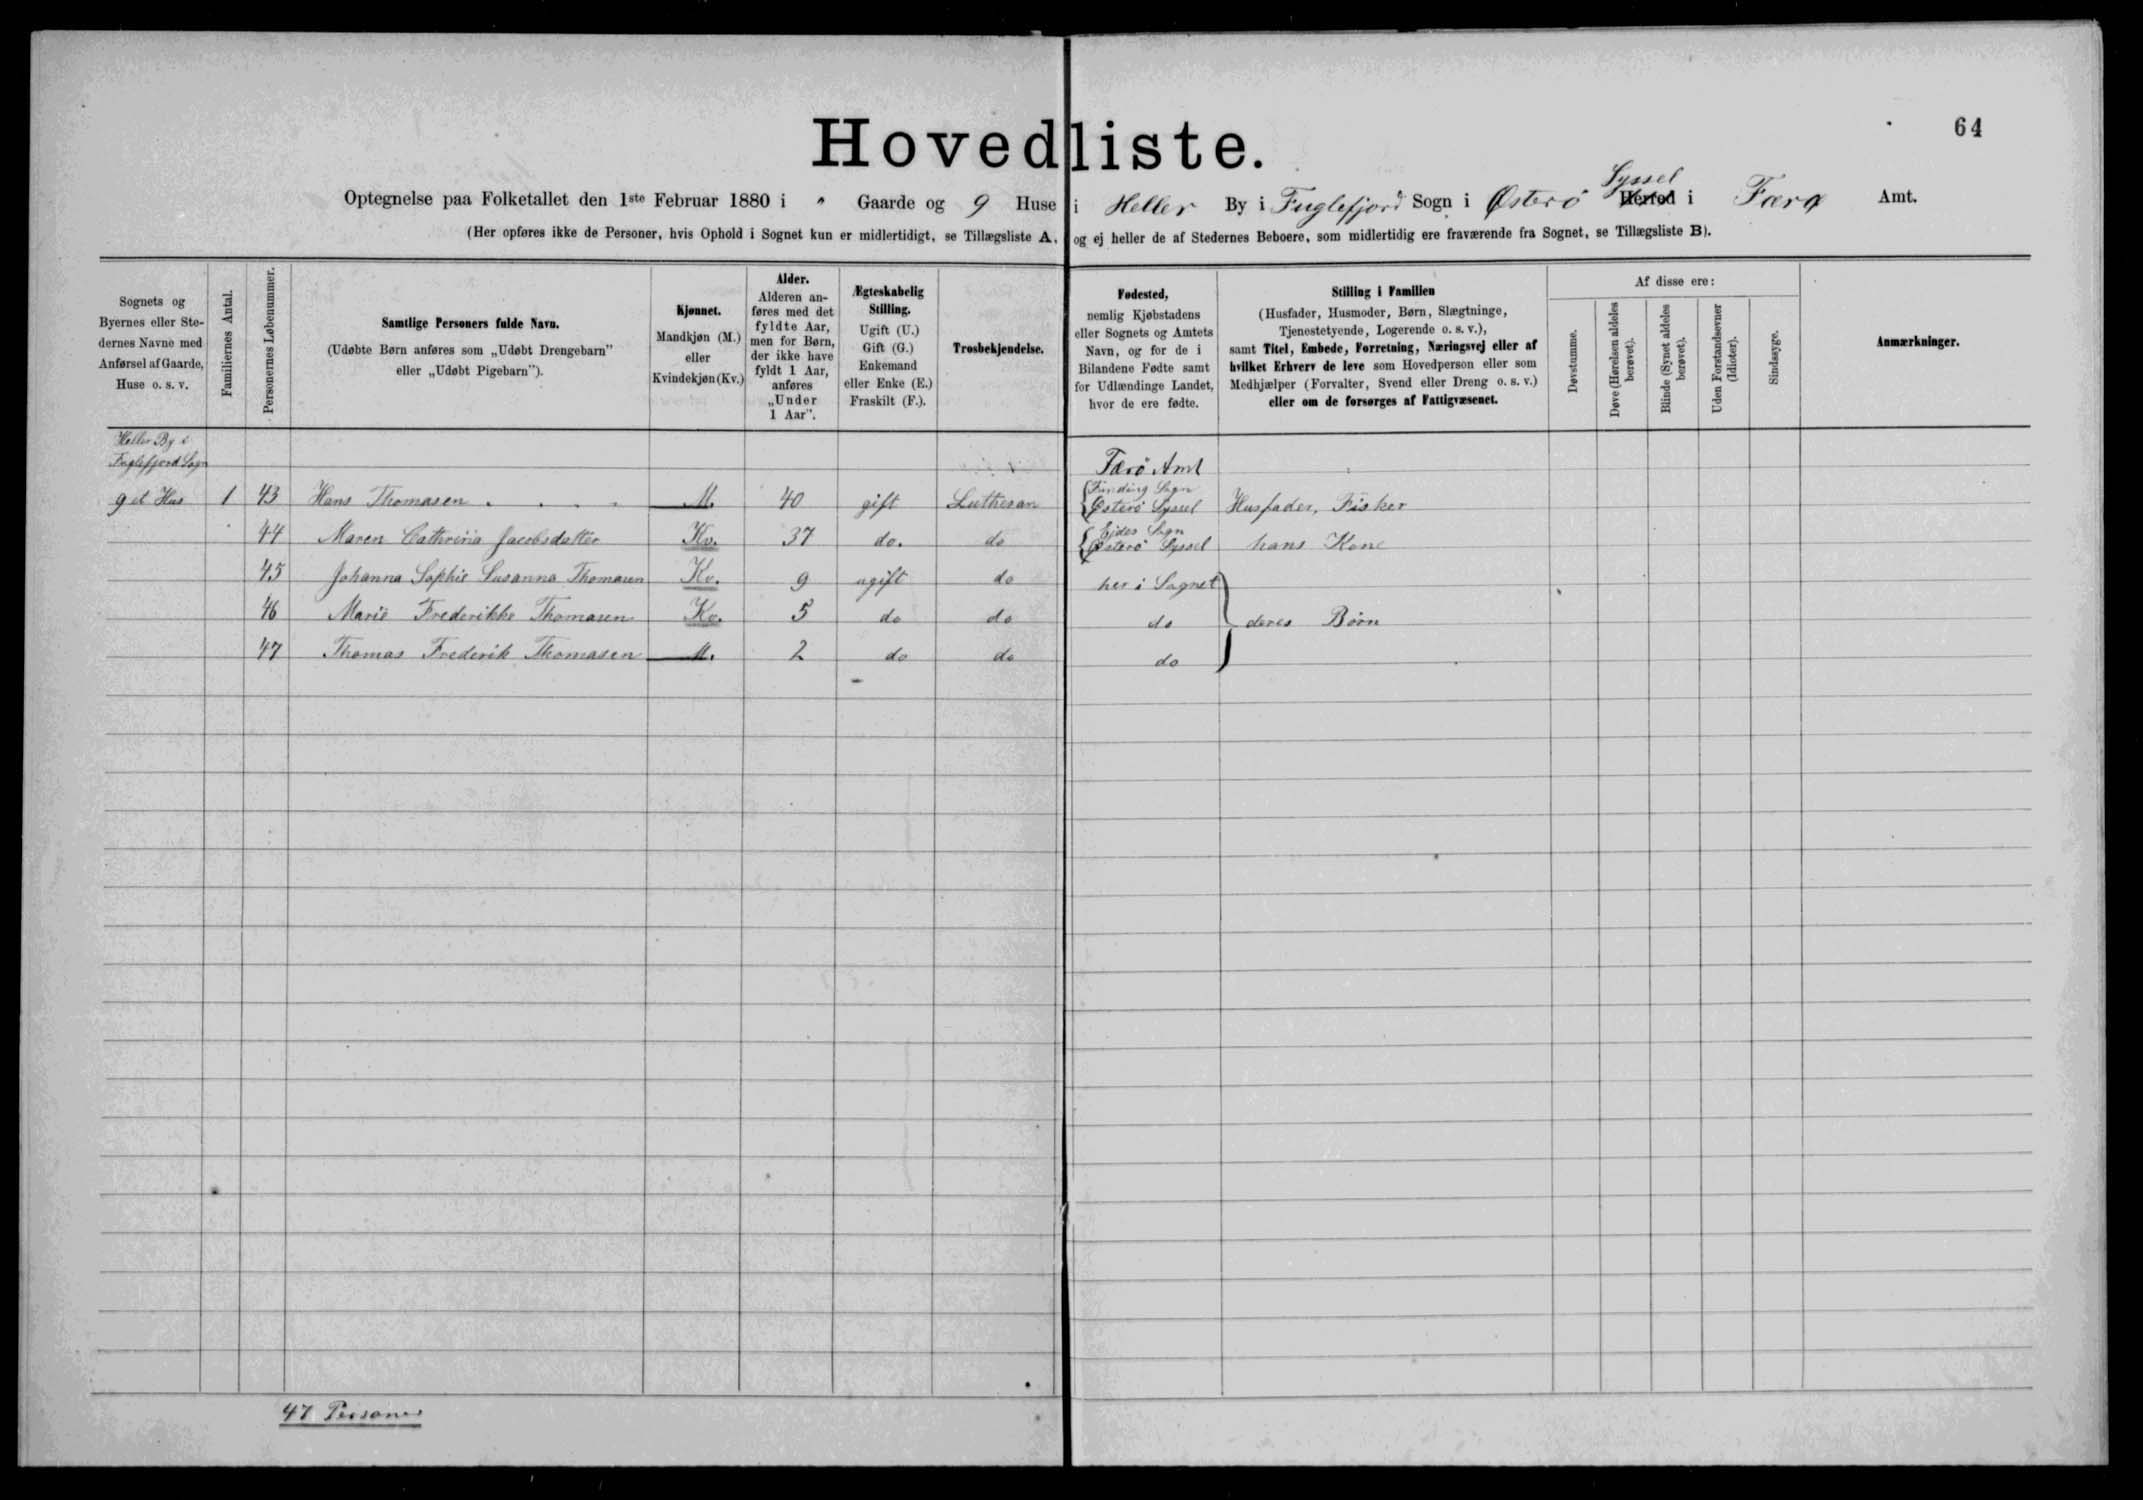 64
Hovedliste.
Optegnelse paa Folketallet den 1ste Februar 1880 i " Gaarde og 9 Huse i Heller By i Fuglefjord Sogn i Østerø Syssel Herred i Færø Amt.
(Her opføres ikke de Personer, hvis Ophold i Sognet kun er midlertidigt, se Tillægsliste A, og ej heller de af Stedernes Beboere, som midlertidig ere fraværende fra Sognet, se Tillægsliste B).
Sognets og
Byernes eller Ste-
dernes Navne med
Anførsel af Gaarde,
Huse o. s. v.
Familiernes Antal.
Personernes Løbenummer.
Samtlige Personers fulde Navn.
(Udøbte Børn anføres som „Udøbt Drengebarn"
eller „Udøbt Pigebarn").
Kjønnet.
Mandkjøn (M.)
eller
Kvindekjøn (Kv.)
Alder.
Alderen an-
føres med det
fyldte Aar,
men for Børn,
der ikke have
fyldt 1 Aar,
anføres
„Under
1 Aar".
Ægteskabelig
Stilling.
Ugift (U.)
Gift (G.)
Enkemand
eller Enke (E.)
Fraskilt (F.).
Trosbekjendelse.
Fødested,
nemlig Kjøbstadens
eller Sognets og Amtets
Navn, og for de i
Bilandene Fødte samt
for Udlændinge Landet,
hvor de ere fødte.
Stilling i Familien
(Husfader, Husmoder, Børn, Slægtninge,
Tjenestetyende, Logerende o. s. v.),
samt Titel, Embede, Forretning, Næringsvej eller af
hvilket Erhverv de leve som Hovedperson eller som
Medhjælper (Forvalter, Svend eller Dreng o. s. v.)
eller om de forsørges af Fattigvæsenet.
Af disse ere:
Døvstumme.
Døve (Hørelsen aldeles
berøvet).
Blinde (Synet aldeles
berøvet).
Uden Forstandsevner
(Idioter).
Sindssyge.
Anmærkninger.
Heller By i
Fuglefjord Sogn
Færö Amt
9et Hus 1 43 Hans Thomasen M. 40 gift Lutheran Funding Sogn Østerö Syssel Husfader, Fisker
44 Maren Cathrina Jacobsdatter Kv. 37 do. do Ejdes Sogn Østerö Syssel hans Kone
45 Johanna Sophie Susanna Thomasen Kv. 9 ugift do her i Sognet
46 Marie Frederikke Thomasen Kv. 5 do do do deres Börn
47 Thomas Frederik Thomasen M. 2 do do do
47 Personer